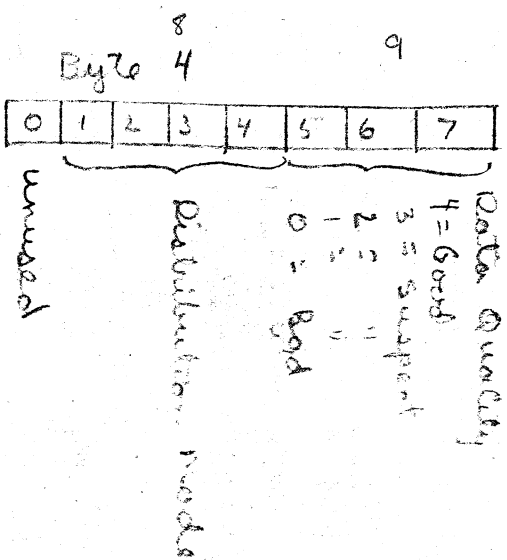 8 9
Byte 4
0 1 2 3 4 5 6 7
unused
Distribution mode
Data Quality
4 = Good
3 = Suspect
2 = "
1 " "
0 " Bad